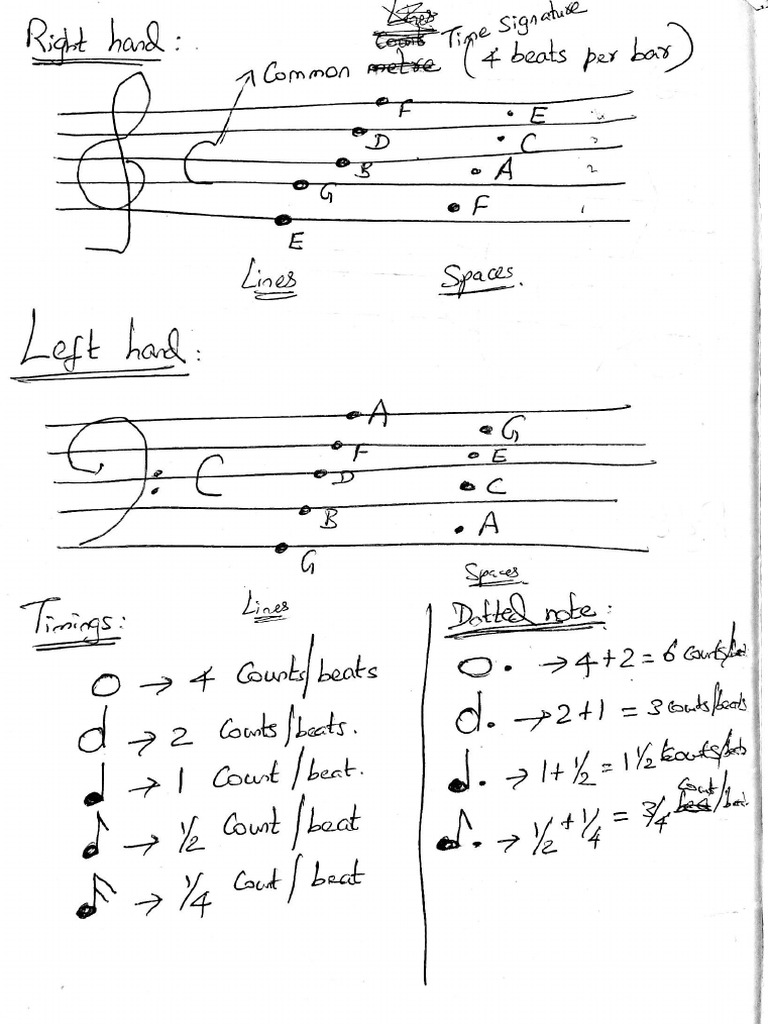 Lines
Counts
Right hand: Time Signature
Common metre (4 beats per bar)
F E
D C
B A
G F
E
Lines Spaces.
Left hand:
A
G
F E
C D C
B A
G
Spaces
Lines
Timings: Dotted note:
→ 4 Counts/beats
. → 4 + 2 = 6 Counts/beat
→ 2 Counts/beats.
. → 2 + 1 = 3 counts/beats
→ 1 Count/beat.
. → 1 + 1/2 = 1 1/2 counts/beats
→ 1/2 Count/beat
. → 1/2 + 1/4 = 3/4 count/beat
→ 1/4 Count/beat